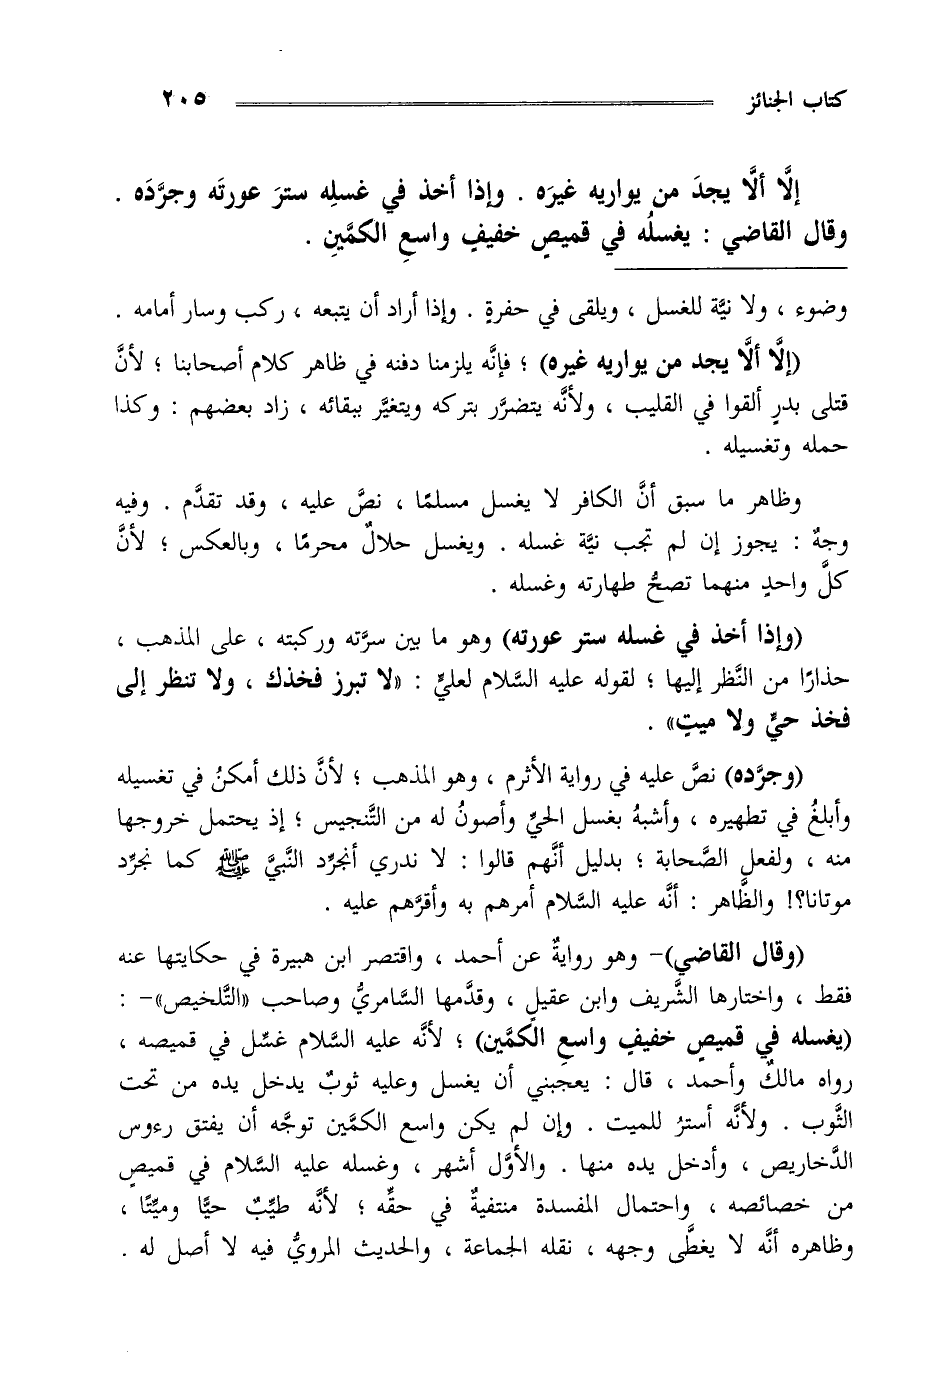 كتاب الجنائز ٢٠٥
إلَّا ألَّا يجدَ من يواريه غيرَه . وإذا أخذ في غسلِه سترَ عورتَه وجرَّدَه .
وقال القاضي : يغسلُه في قميصٍ خفيفٍ واسعِ الكمَّينِ .
وضوء ، ولا نيَّة للغسل ، ويلقى في حفرةٍ . وإذا أراد أن يتبعه ، ركب وسار أمامه .
(إلَّا ألَّا يجد من يواريه غيره) ؛ فإنَّه يلزمنا دفنه في ظاهر كلام أصحابنا ؛ لأنَّ
قتلى بدرٍ ألقوا في القليب ، ولأنَّه يتضرَّر بتركه ويتغيَّر ببقائه ، زاد بعضهم : وكذا
حمله وتغسيله .
وظاهر ما سبق أنَّ الكافر لا يغسل مسلمًا ، نصَّ عليه ، وقد تقدَّم . وفيه
وجهٌ : يجوز إن لم تجب نيَّة غسله . ويغسل حلالٌ محرمًا ، وبالعكس ؛ لأنَّ
كلَّ واحدٍ منهما تصحُّ طهارته وغسله .
(وإذا أخذ في غسله ستر عورته) وهو ما بين سرَّته وركبته ، على المذهب ،
حذارًا من النَّظر إليها ؛ لقوله عليه السَّلام لعليٍّ : «لا تبرز فخذك ، ولا تنظر إلى
فخذ حيٍّ ولا ميتٍ» .
(وجرَّده) نصَّ عليه في رواية الأثرم ، وهو المذهب ؛ لأنَّ ذلك أمكنُ في تغسيله
وأبلغُ في تطهيره ، وأشبهُ بغسل الحيِّ وأصونُ له من التَّنجيس ؛ إذ يحتمل خروجها
منه ، ولفعل الصَّحابة ؛ بدليل أنَّهم قالوا : لا ندري أنجرِّد النَّبيَّ ﷺ كما نجرِّد
موتانا؟! والظَّاهر : أنَّه عليه السَّلام أمرهم به وأقرَّهم عليه .
(وقال القاضي)– وهو روايةٌ عن أحمد ، واقتصر ابن هبيرة في حكايتها عنه
فقط ، واختارها الشَّريف وابن عقيلٍ ، وقدَّمها السَّامريُّ وصاحب «التَّلخيص»– :
(يغسله في قميصٍ خفيفٍ واسعِ الكمَّين) ؛ لأنَّه عليه السَّلام غسِّل في قميصه ،
رواه مالكٌ وأحمد ، قال : يعجبني أن يغسل وعليه ثوبٌ يدخل يده من تحت
الثَّوب . ولأنَّه أسترُ للميت . وإن لم يكن واسع الكمَّين توجَّه أن يفتق رءوس
الدَّخاريص ، وأدخل يده منها . والأوَّل أشهر ، وغسله عليه السَّلام في قميصٍ
من خصائصه ، واحتمال المفسدة منتفيةٌ في حقِّه ؛ لأنَّه طيِّبٌ حيًّا وميِّتًا ،
وظاهره أنَّه لا يغطَّى وجهه ، نقله الجماعة ، والحديث المرويُّ فيه لا أصل له .